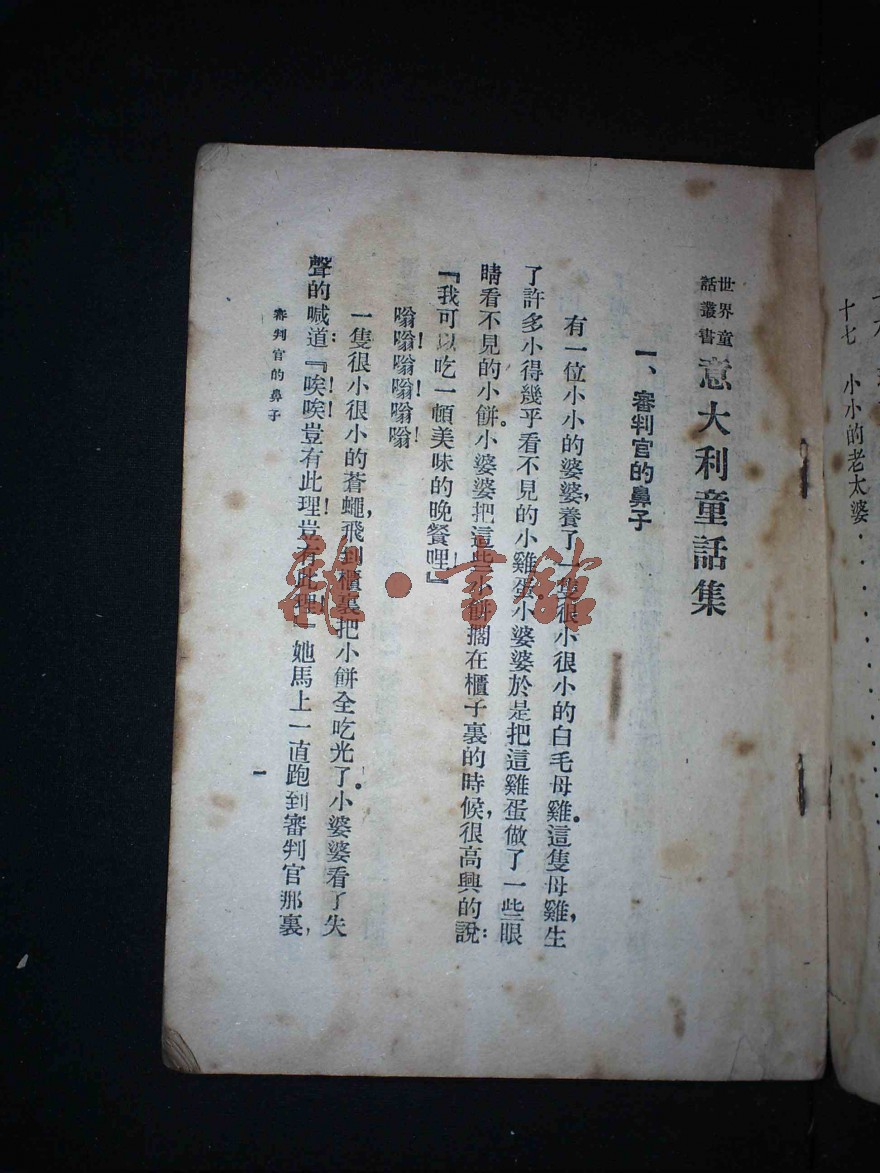 世界童
話叢書
意大利童話集
一、審判官的鼻子
有一位小小的婆婆，養了一隻很小很小的白毛母雞。這隻母雞，生
了許多小得幾乎看不見的小雞蛋。小婆婆於是把這雞蛋做了一些眼
睛看不見的小餅。小婆婆把這些小餅擱在櫃子裏的時候，很高興的說：
『我可以吃一頓美味的晚餐哩！』
嗡嗡！嗡嗡！嗡嗡！
一隻很小很小的蒼蠅，飛到櫃裏把小餅全吃光了。小婆婆看了失
聲的喊道：『唉！唉！豈有此理！豈有此理！』她馬上一直跑到審判官那裏，
審判官的鼻子
一
十七 小小的老太婆
龍·書館